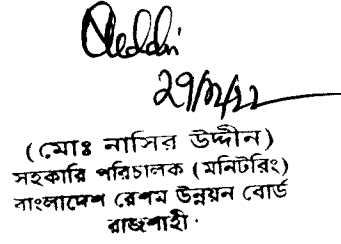 ২১/১২/২২
(মোঃ নাসির উদ্দীন)
সহকারি পরিচালক (মনিটরিং)
বাংলাদেশ রেশম উন্নয়ন বোর্ড
রাজশাহী।